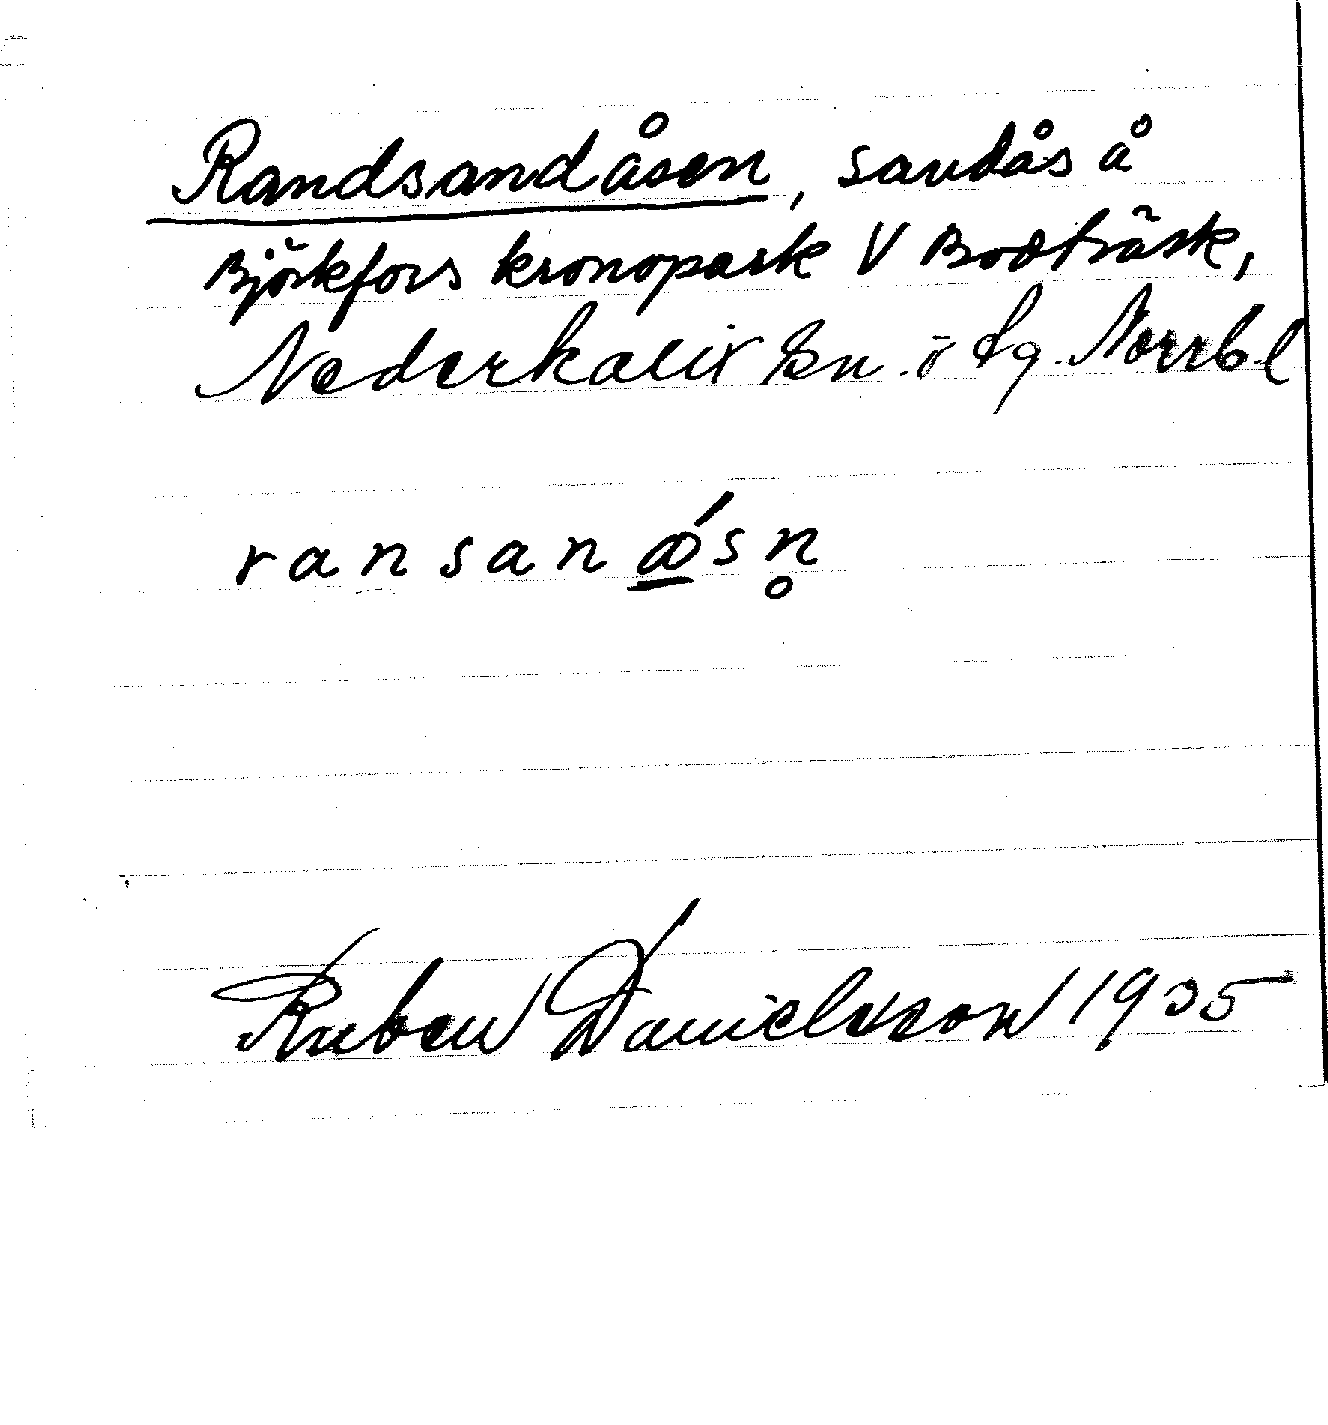 Randsandåsen, sandås å
Björkfors kronopark V Bodträsk,
Nederkalix sn. ö fg. Norrb. l
ransanǿsn̥
Ruben Danielsson 1935